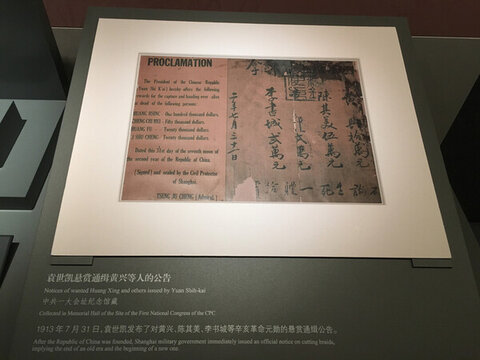 PROCLAMATION
The President of the Chinese Republic
(Yuan Shi K'ai) hereby offers the following
rewards for the capture and handing over alive
or dead of the following persons:
HUANG HSING - One hundred thousand dollars.
CHENG CHI MEI - Fifty thousand dollars.
HUANG FU - Twenty thousand dollars.
LI SHU CHENG - Twenty thousand dollars.
Dated this 31st day of the seventh moon of
the second year of the Republic of China.
(Signed) and sealed by the Civil Protector
of Shanghai.
TSENG JU CHENG (Admiral.)
陳其美伍萬元
李書城貳萬元
二年七月三十一日
袁世凯悬赏通缉黄兴等人的公告
Notices of wanted Huang Xing and others issued by Yuan Shih-kai
中共一大会址纪念馆藏
Collected in Memorial Hall of the Site of the First National Congress of the CPC
1913年7月31日，袁世凯发布了对黄兴、陈其美、李书城等辛亥革命元勋的悬赏通缉公告。
After the Republic of China was founded, Shanghai military government immediately issued an official notice on cutting braids,
implying the end of an old era and the beginning of a new one.